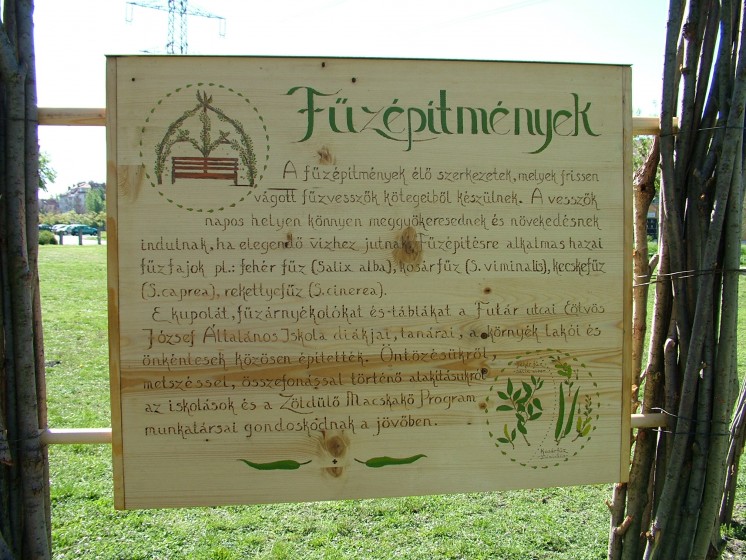 Fűzépítmények
A fűzépítmények élő szerkezetek, melyek frissen
vágott fűzvesszők kötegeiből készülnek. A vesszők
napos helyen könnyen meggyökeresednek és növekedésnek
indulnak, ha elegendő vízhez jutnak. Fűzépítésre alkalmas hazai
fűzfajok pl.: fehér fűz (Salix alba), kosárfűz (S. viminalis), kecskefűz
(S. caprea), rekettyefűz (S. cinerea).
E kupolát, fűzárnyékolókat és-táblákat a Futár utcai Eötvös
József Általános Iskola diákjai, tanárai, a környék lakói és
önkéntesek közösen építették. Öntözésükről,
metszéssel, összefonással történő alakításukról
az iskolások és a Zöldülő Macskakő Program
munkatársai gondoskodnak a jövőben.